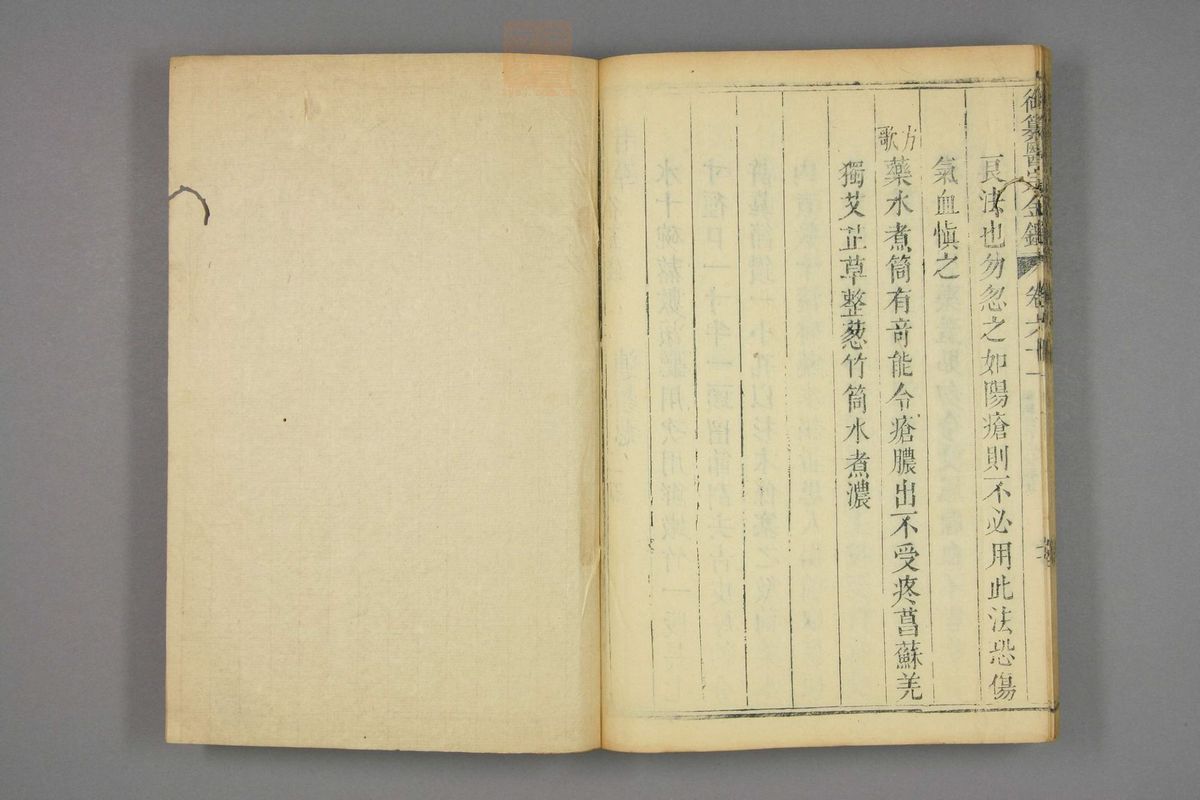 御纂醫宗金鑑 卷六十一
良法也勿忽之如陽瘡則不必用此法恐傷
氣血愼之
方歌
藥水煮筒有奇能令瘡膿出不受疼菖蘇羌
獨艾芷草整葱竹筒水煮濃